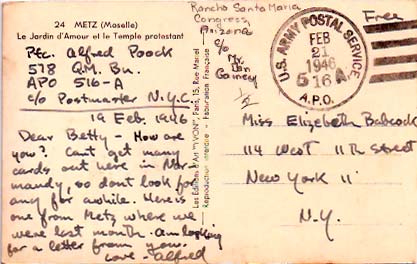 24 METZ (Moselle)
Le Jardin d'Amour et le Temple protestant
Pfc. Alfred Poock
578 Q.M. Bn.
APO 516-A
c/o Postmaster N.Y.C.
19 Feb. 1946
Dear Betty - How are
you? Can't get many
cards out here in Nor
mandy, so dont look for
any for awhile. Here is
one from Metz where we
were last month. Am looking
for a letter from you.
Love - Alfred
Les Editions d'Art "YVON", Paris, 15, Rue Martel
Reproduction interdite - Fabrication Française
Rancho Santa Maria
Congress,
Arizona
c/o
Mr. Dan
Gainey
U.S. ARMY POSTAL SERVICE
FEB
21
1946
516 A
A.P.O.
Free
Miss Elizabeth Babcock
114 West 11th Street
New York 11
N.Y.